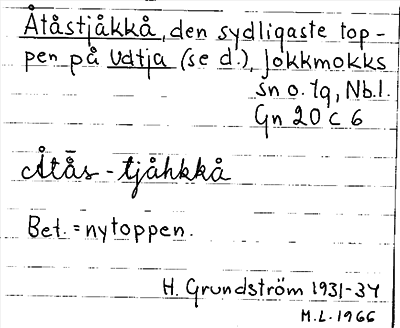 Åtåstjåkkå, den sydligaste top-
pen på Udtja (se d.), Jokkmokks
sn o. lg, Nb.l.
Gn 20 C 6
Åtås-tjåhkkå
Bet. = nytoppen.
H. Grundström 1931-34
M.L. 1966